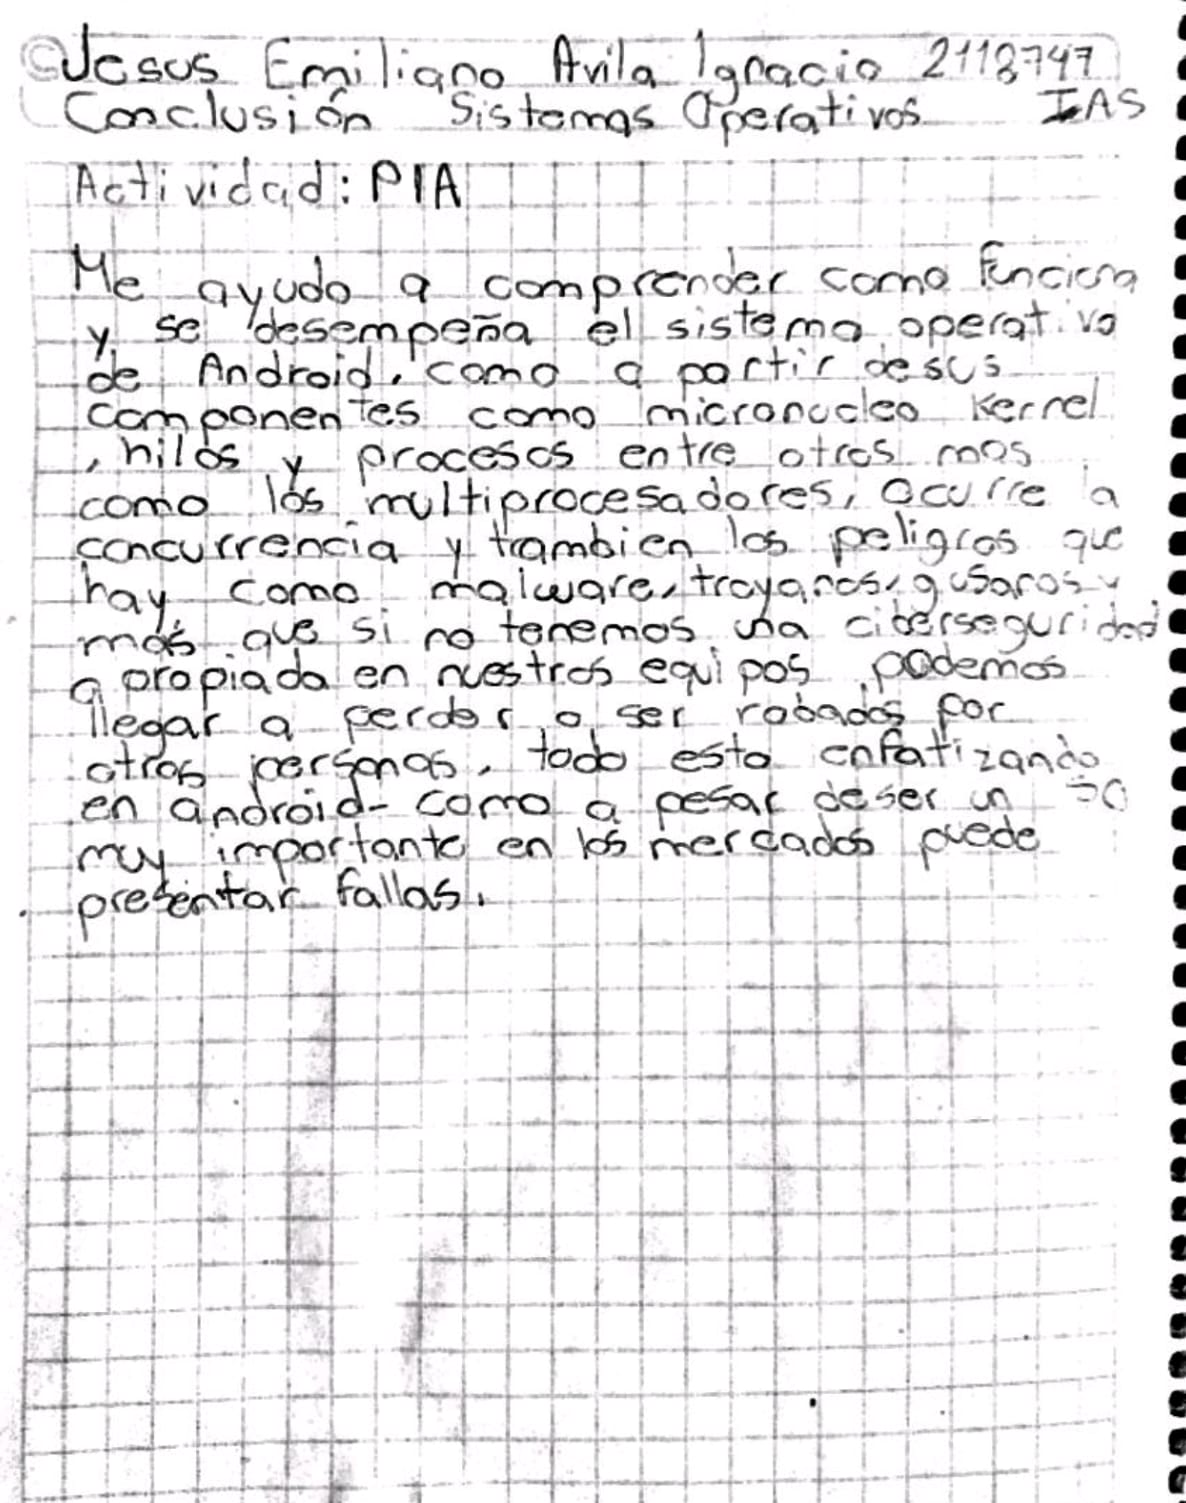 Jesus Emiliano Avila Ignacio 2118747
Conclusión Sistemas Operativos IAS
Actividad: PIA
Me ayudo a comprender como funciona
y se desempeña el sistema operativo
de Android, como a partir de sus
componentes como micronucleo Kernel
, hilos y procesos entre otros mas
como los multiprocesadores, ocurre a
concurrencia y trambien los peligros que
hay como malware, troyanos, gusanos y
más que si no tenemos una ciberseguridad
apropiada en nuestros equipos, podemos
llegar a perder o ser robados por
otras personas, todo esto enfatizando
en android- como a pesar de ser un SO
muy importante en los mercados puede
presentar fallas.